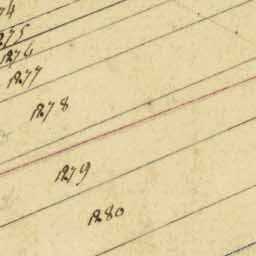 1275
1276
1277
1278
1279
1280